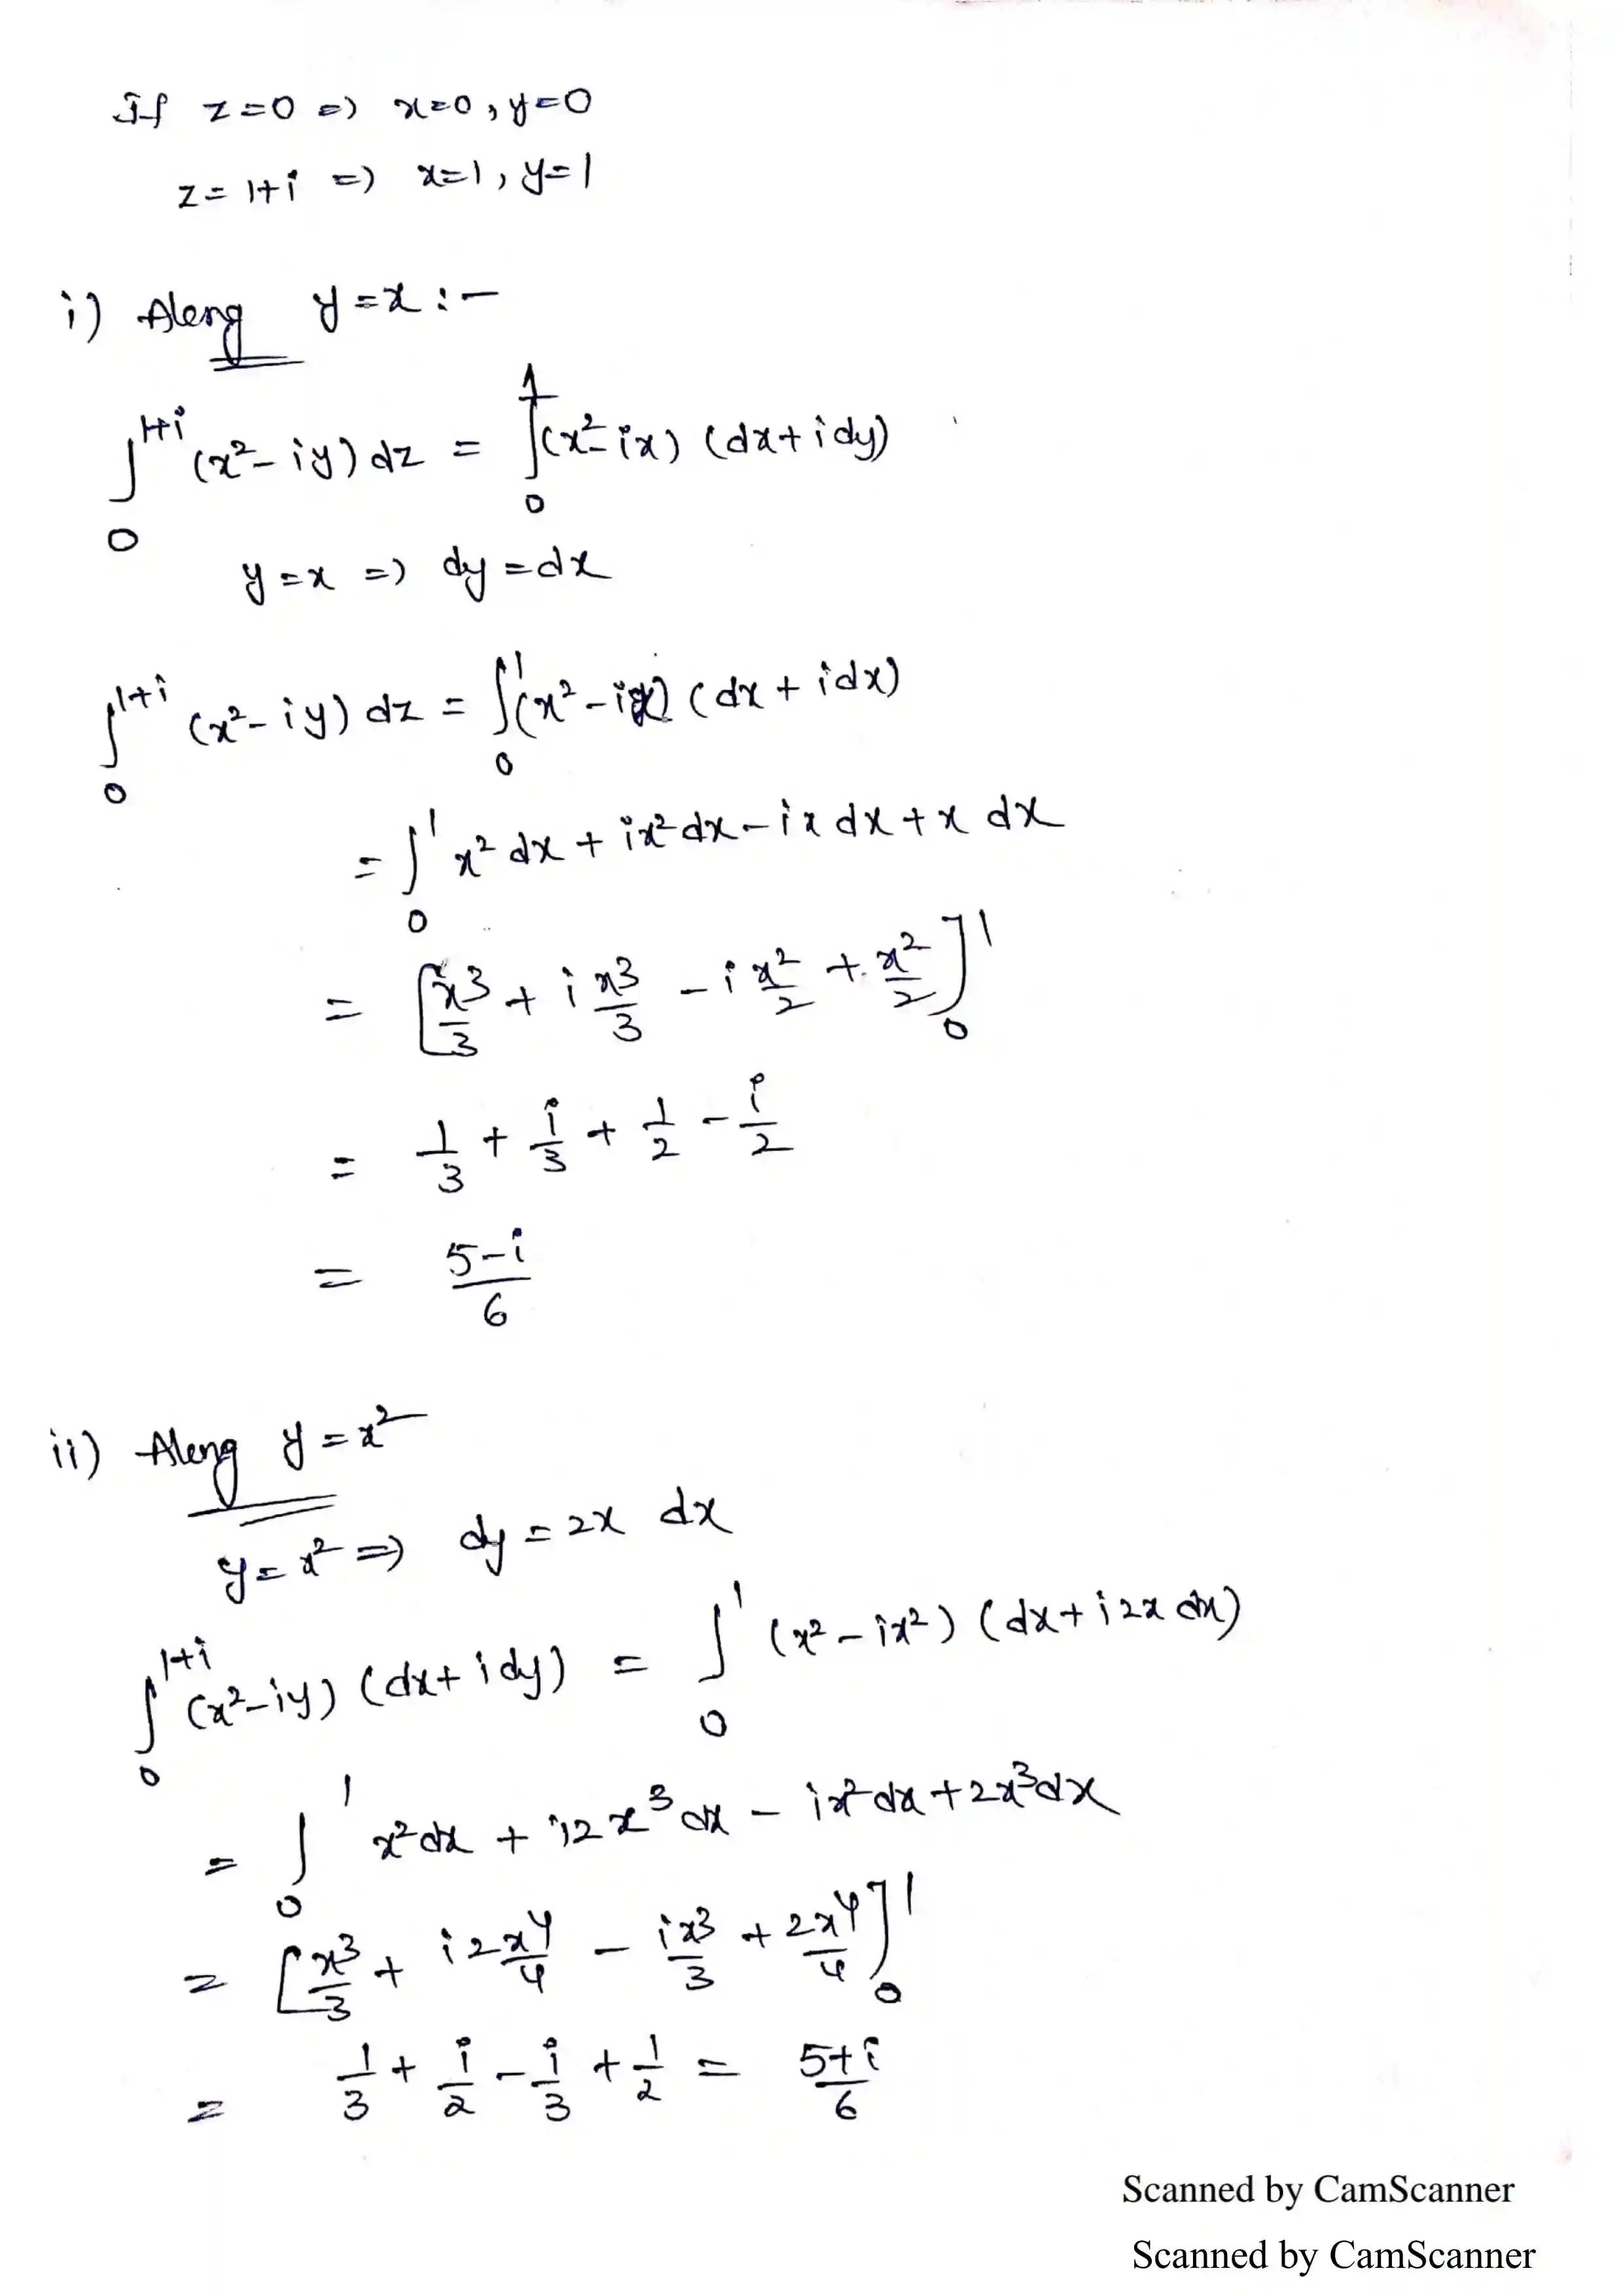 If z=0 => x=0, y=0
z=1+i => x=1, y=1
i) Along y=x :-
∫₀¹⁺ⁱ (x²-iy) dz = ∫₀¹ (x²-ix) (dx+idy)
y=x => dy=dx
∫₀¹⁺ⁱ (x²-iy) dz = ∫₀¹ (x²-ix) (dx+idx)
= ∫₀¹ x² dx + ix² dx - ix dx + x dx
= [x³/3 + i x³/3 - i x²/2 + x²/2]₀¹
= 1/3 + i/3 + 1/2 - i/2
= (5-i)/6
ii) Along y=x²
y=x² => dy=2x dx
∫₀¹⁺ⁱ (x²-iy) (dx+idy) = ∫₀¹ (x²-ix²) (dx+i2x dx)
= ∫₀¹ x²dx + i2x³dx - ix²dx + 2x³dx
= [x³/3 + i2x⁴/4 - ix³/3 + 2x⁴/4]₀¹
= 1/3 + i/2 - i/3 + 1/2 = (5+i)/6
Scanned by CamScanner
Scanned by CamScanner